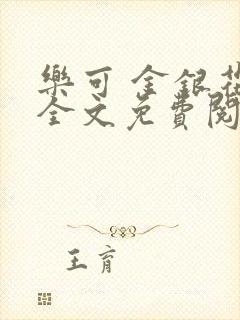 樂可 金銀花
全文免費閱
王育